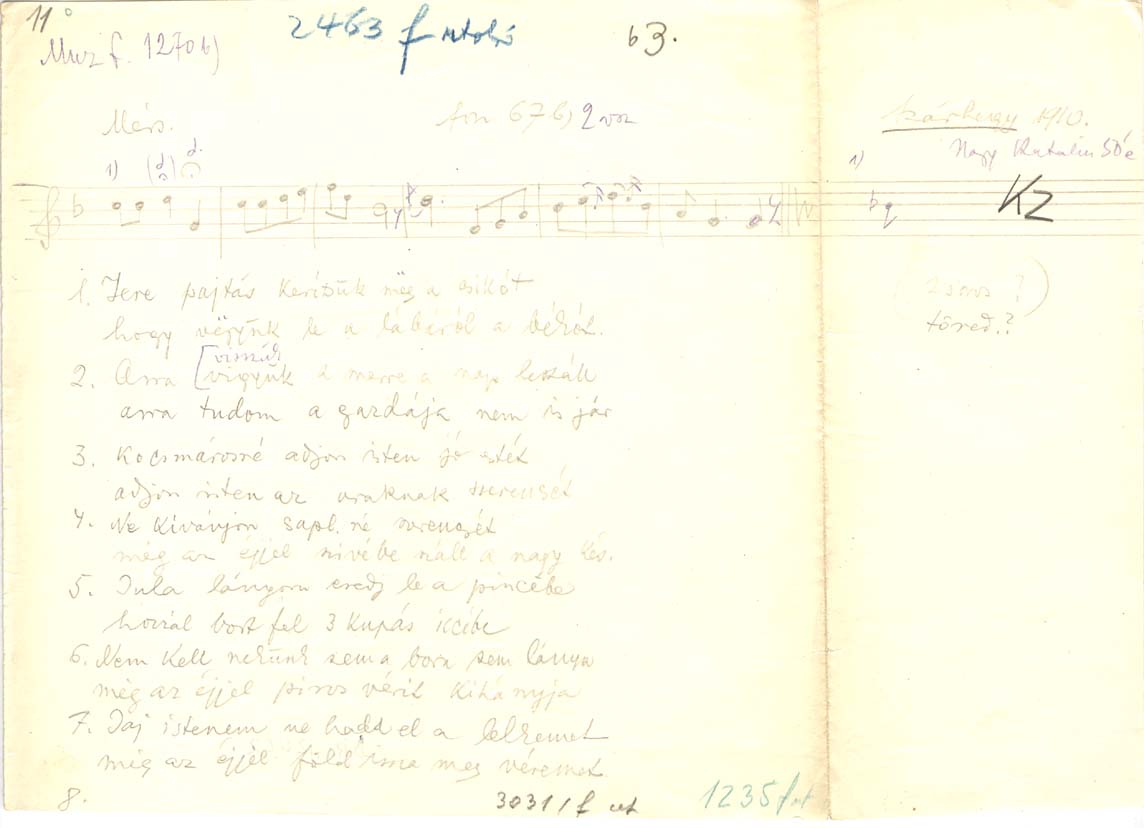 11°
2463 f utolsó
b 3.
Muz f. 1270 b)
Mérs.
fon 676) 2 vsz
Szárhegy 1910.
Nagy Katalin 50 é
1)
1)
KZ
1. Jere pajtás kerítsük meg a csikót
hogy végyük le a lábáról a békót.
(2 soros ?)
töred.?
visszük
2. Arra vigyük a merre a nap leszáll
arra tudom a gazdája nem is jár
3. Kocsmárosné adjon isten jó estét
adjon isten az uraknak szerencsét
4. Ne kivánjon sapl. né szerencsét
még az éjjel szivébe száll a nagy kés.
5. Jula lányom eredj le a pincébe
hozzál bort fel 3 kupás iccébe
6. Nem kell nekünk sem a bora sem lánya
még az éjjel piros vérit kihányja
7. Jaj istenem ne hadd el a lelkemet
míg az éjjel föld issza meg véremet
8.
3031/f ut
1235 f ut